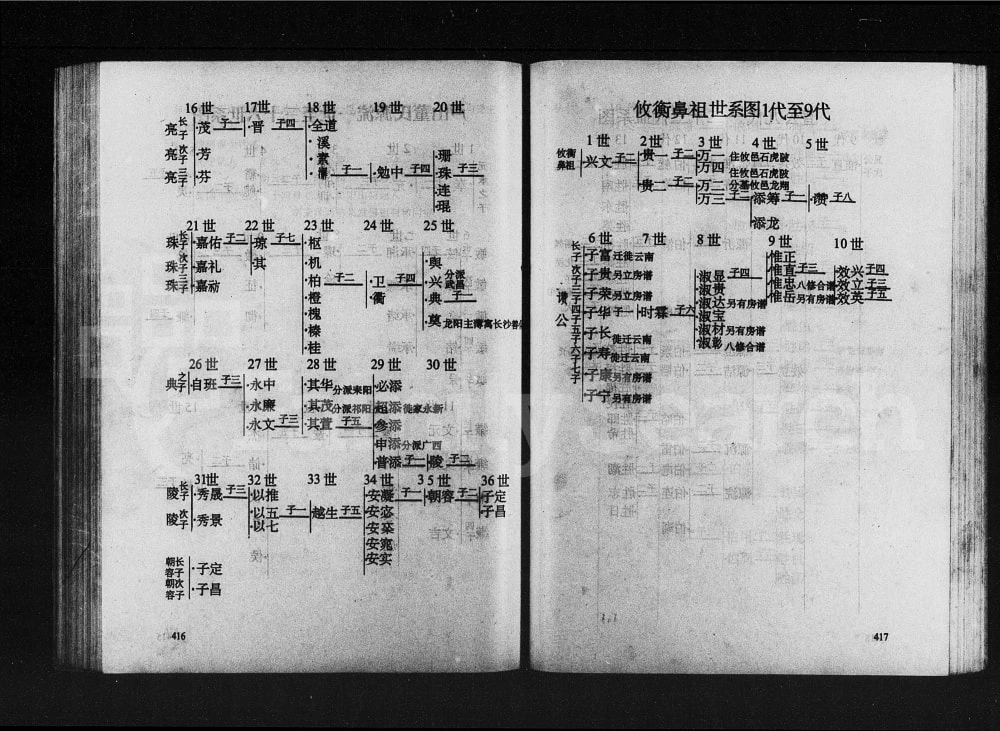 16世 17世 18世 19世 20世
亮长子 茂 子一 晋 子四 全道
亮次子 芳 溪
亮三子 芬 素
子一 勉中 子四 珊 子三
珠
连
琨
21世 22世 23世 24世 25世
珠长子 嘉佑 子二 琼 子七 枢
珠次子 嘉礼 其 机
珠三子 嘉动 柏
橙 子二 卫 子四 舆
槐 衢 兴 分派武昌
榛 典 子一
桂 莫 龙阳主薄寓长沙善
26世 27世 28世 29世 30世
典之子 自班 子三 永中 其华 分派耒阳 必添
永廉 其茂 分派祁阳 超添 徙家永新
永文 子三 其萱 子五 参添
申添 分派广西
普添 子一 陵 子二
31世 32世 33世 34世 35世 36世
陵长子 秀晟 子三 以推 安凝 子一 朝容 子二 子定
陵次子 秀景 以五 子一 越生 子五 安 子昌
以七 安
安宽
安实
朝容长子 子定
朝容次子 子昌
416
攸衡鼻祖世系图1代至9代
1世 2世 3世 4世 5世
攸衡鼻祖 兴文 子二 贵一 子二 万一 住攸邑石虎陂
万四 住攸邑石虎陂
贵二 子二 万二 分基攸邑龙翔
万三 子二 添筹 子一 赞 子八
添龙
6世 7世 8世 9世 10世
赞公
长子 子富 迁徙云南
次子 子贵 另立房谱
三子 子荣 另立房谱
四子 子华 子一 时霖 子六
五子 子长 徙迁云南
六子 子寿 徙迁云南
七子 子康 另有房谱
子宁 另有房谱
淑显 子四 惟正
淑贵 惟直 子三 效兴 子四
淑达 另有房谱 惟忠 八修合谱 效立 子三
淑宝 惟岳 另有房谱 效英 子五
淑材 另有房谱
淑彰 八修合谱
417